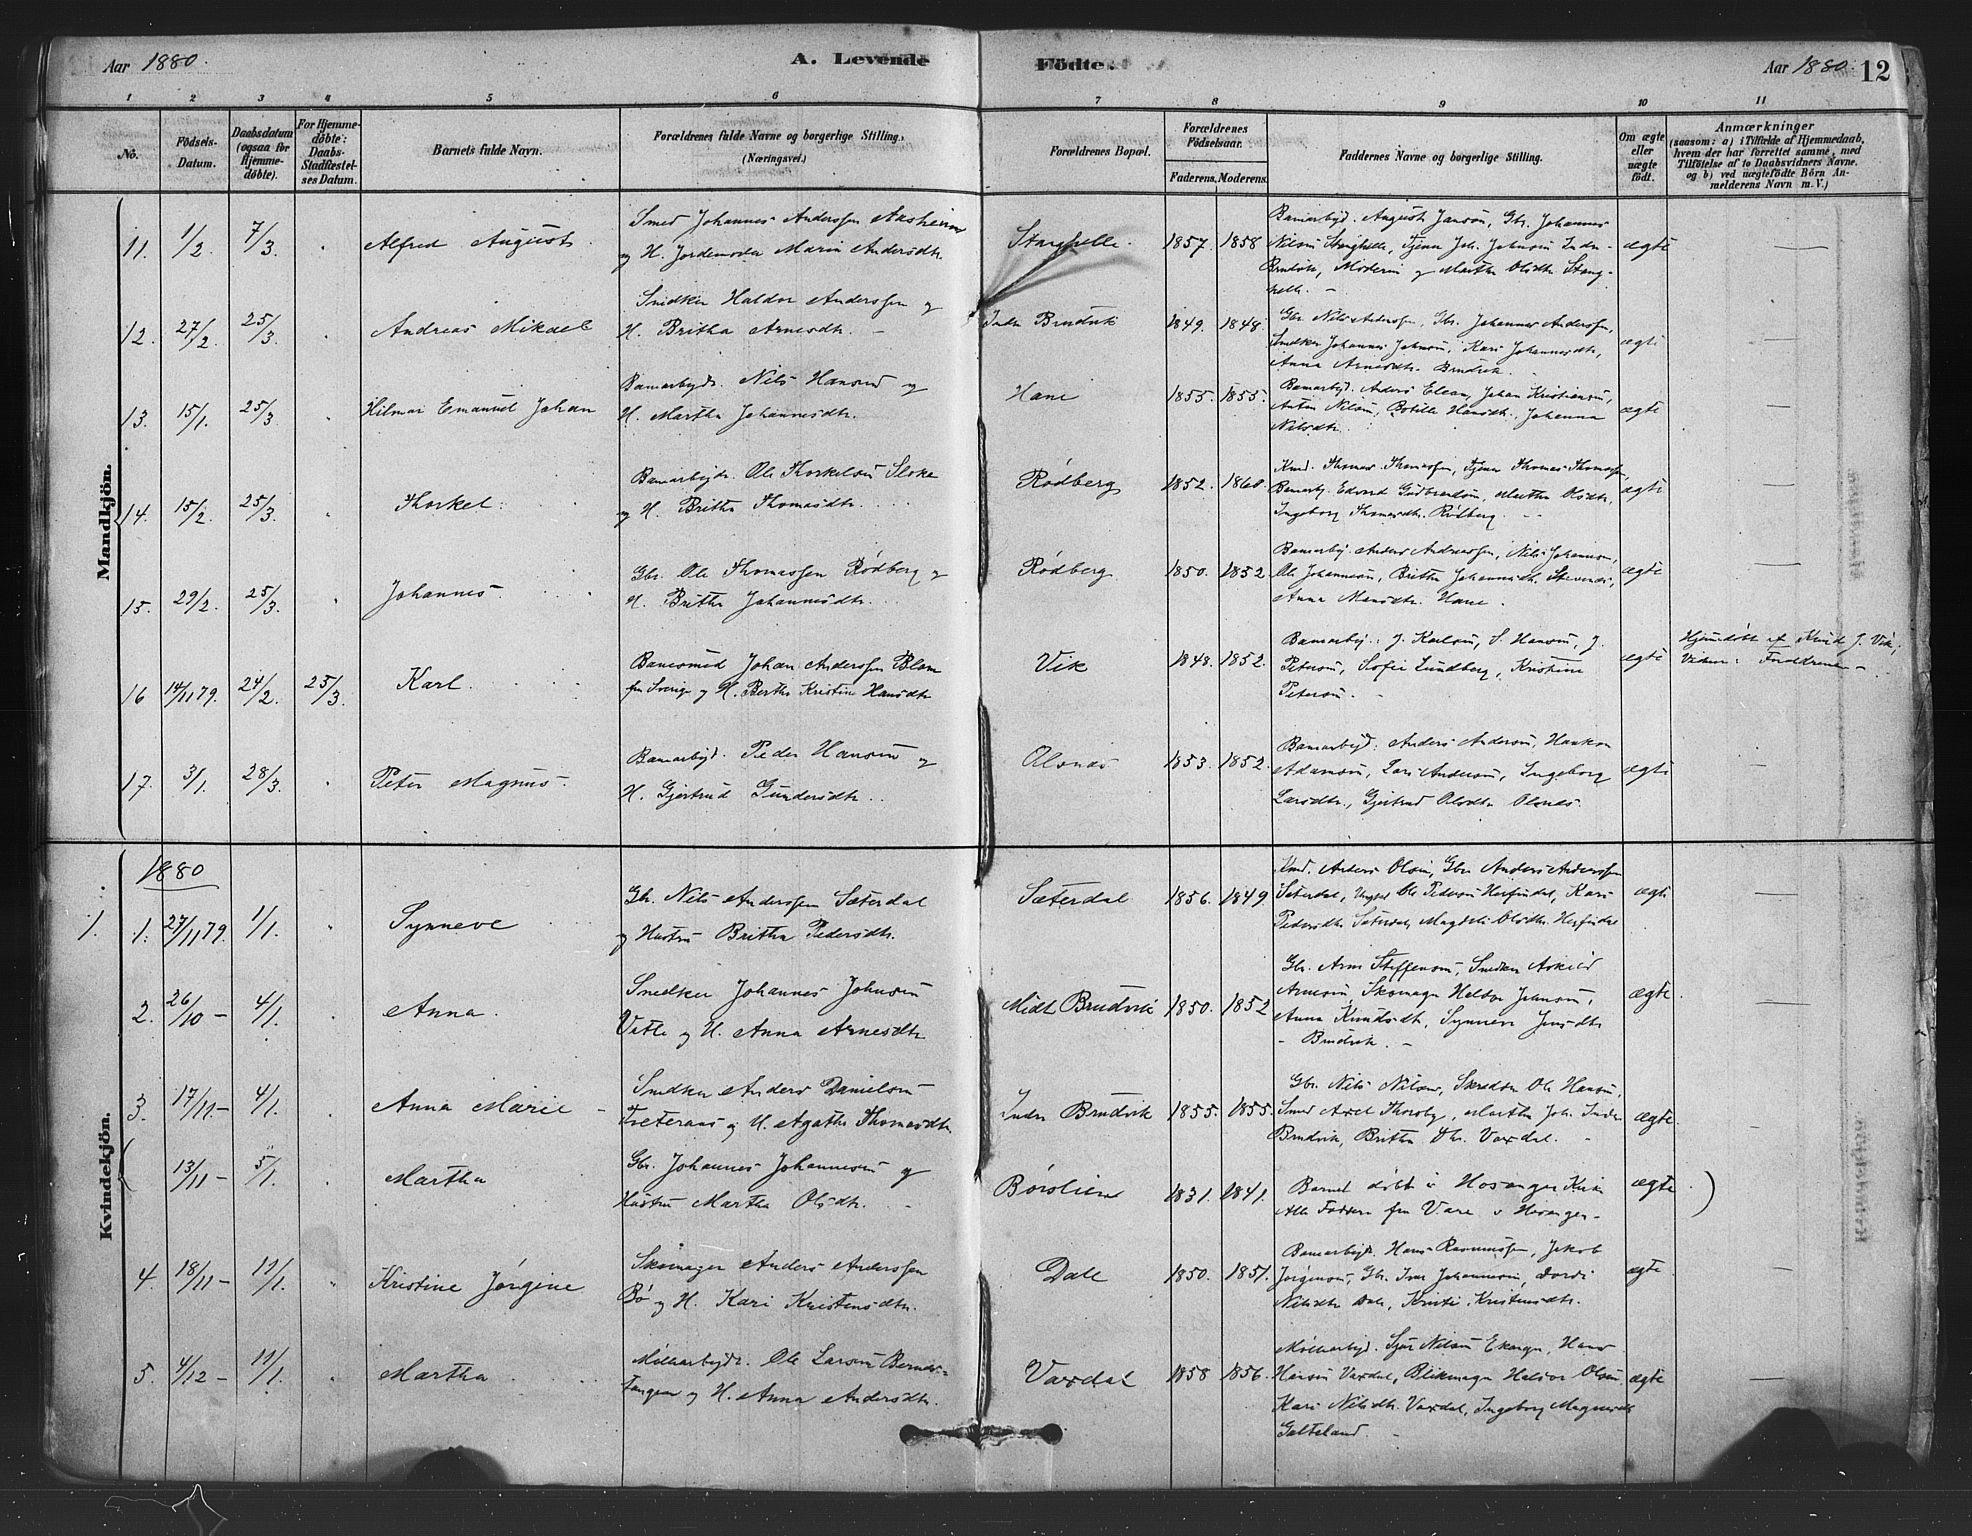 Aar 1880.
A. Levende
Födte.
Aar 1880.
12
1 2 3 4 5 6 7 8 9 10 11
No.
Födsels-
Datum.
Daabsdatum
(ogsaa for
Hjemme-
döbte).
For Hjemme-
döbte:
Daabs-
Stadfæstel-
ses Datum.
Barnets fulde Navn.
Forældrenes fulde Navne og borgerlige Stilling.
(Næringsvei.)
Forældrenes Bopæl.
Forældrenes
Födselsaar.
Faderens. Moderens.
Faddernes Navne og borgerlige Stilling.
Om ægte
eller
uægte
födt.
Anmærkninger
(saasom: a) i Tilfælde af Hjemmedaab,
hvem der har forrettet samme, med
Tilföielse af to Daabsvidners Navne.
og b) ved uægtefödte Börn An-
melderens Navn m. V.)
Mandkjön.
11. 1/2 7/3. Alfred August.
Smed Johannes Anderssen
og H. Jordemoder Marin Andersdtr.
Stanghelle. 1857. 1858
Banearbyd. August Janson, Gbr. Johannes
Nilsen Stanghelle, Tjener Joh. Johnson Indre
Brudvik, og Martha Olsdtr. Stang-
helle. -
ægte —
12. 27/2. 25/3. Andreas Mikael
Snedker Haldor Anderssen og
H. Britha Arnesdtr. -
Indr Brudvik 1849. 1848.
Gbr. Nils Anderssen, Gbr. Johannes Anderssen,
Snedker Johannes Johnson, Kari Johannesdtr,
Anna Arnesdtr. Brudvik.
ægte —
13. 15/1. 25/3. Hilmar Emanuel Johan
Banearbydr. Nils Hansen og
H. Martha Johannesdtr.
Hane 1855. 1855.
Banearbyd. Anders Johan Kristiansen,
Anton Nilsen, Botille Hansdtr., Johanna
Nilsdtr.
ægte —
14. 15/2. 25/3. Thorkel.
Banearbydr. Ole Thorkelsen
og H. Britha Thomasdtr.
Rödberg 1852. 1860.
Thomas Thomassen, Tjener Thomas Thomassen,
Banearby. Edvard Gudbrandsen, Martha Olsdtr,
Ingeborg Thomasdtr. Rödberg. -
ægte —
15. 29/2. 25/3. Johannes.
Gbr. Ole Thomassen Rödberg og
H. Britha Johannesdtr.
Rödberg 1850. 1852.
Banearby. Anders Andreassen, Nils Johannesen,
Ole Johannesen, Britha Johannesdtr.
Anna Monsdtr. Hane.
ægte —
16 14/11 79. 24/2. 25/3. Karl.
Banesmed Johan Anderssen Blom
fra Sverige og H. Berthe Kristine Hansdtr
Vik 1848. 1852.
Banearby: J. Karlson, S. Hanson, J.
Peterson, Sofie Lundberg, Kristine
Peterson. -
ægte
Hjemdöbt af Knud J. Vik;
Vidner: Forældrene -
17. 3/1. 28/3. Peter Magnus.
Banearbyd. Peder Hansen og
H. Gjertrud Gundersdtr.
Olsnæs 1853. 1852.
Banearbyd: Anders Anderson, Haakon
Adamson, Lars Anderson, Ingeborg
Larsdtr., Gjertrud Olsdtr Olsnæs.
ægte —
Kvindekjön.
1880
1. 1. 27/11 79. 1/1. Synneve
Gbr. Nils Anderssen Sæterdal
og Hustru Britha Pedersdtr.
Sæterdal 1856. 1849.
Anders Olsen, Gbr Anders Anderssen
Sæterdal, Ungkal Ole Pederson Herfindal, Kari
Pedersdtr Sæterdal, Magdeli Olsdtr. Herfindal
ægte —
2. 26/10 - 4/1. Anna.
Snedker Johannes Johnsen
Vatle og H. Anna Arnesdtr
Midt Brudvik 1850. 1852
Gbr. Arne Steffensen, Snedker Askild
Arnesen, Skomager Haldor Johnson,
Anna Knudsdtr, Synneve Jensdtr
- Brudvik. -
ægte. —
3. 17/11 - 4/1. Anna Marie -
Snedker Anders Danielsen
Tveteraas og H. Agathe Thomasdtr.
Indre Brudvik 1855. 1855.
Gbr. Nils Nilsen, Skrædder Ole Hanson,
Smed Axel Thorsby, Martha Joh. Indre
Brudvik, Britha Vaxdal.
ægte. —
13/11 - 5/1. Martha
Gbr. Johannes Johannesen og
Hustru Martha Olsdtr.
Börslien 1831. 1841.
Barnet döbt i Hosanger Kirke
Alle Faddere fra Vare i Hosanger -
ægte. )
4. 18/11 - 11/1. Kristine Jörgine
Skomager Anders Anderssen
Bö og H. Kari Kristensdtr.
Dale 1850. 1851.
Banearbyd. Hans Rasmussen, Jakob
Jörgenson, Gbr. Iver Johannesen, Dordi
Nilsdtr Dale, Kristi Kristensdtr.
ægte —
5. 4/12 - 11/1. Martha
Möllearbydr. Ole Larsen Bernes-
tangen og H. Anna Andersdtr.
Vaxdal 1858 1856.
Möllearbyd. Sjur Nilsen Hans
Hanson Vaxdal, Blikmager Haldor Olsen,
Kari Nilsdtr. Vaxdal, Ingeborg Magnesdtr
.
ægte —